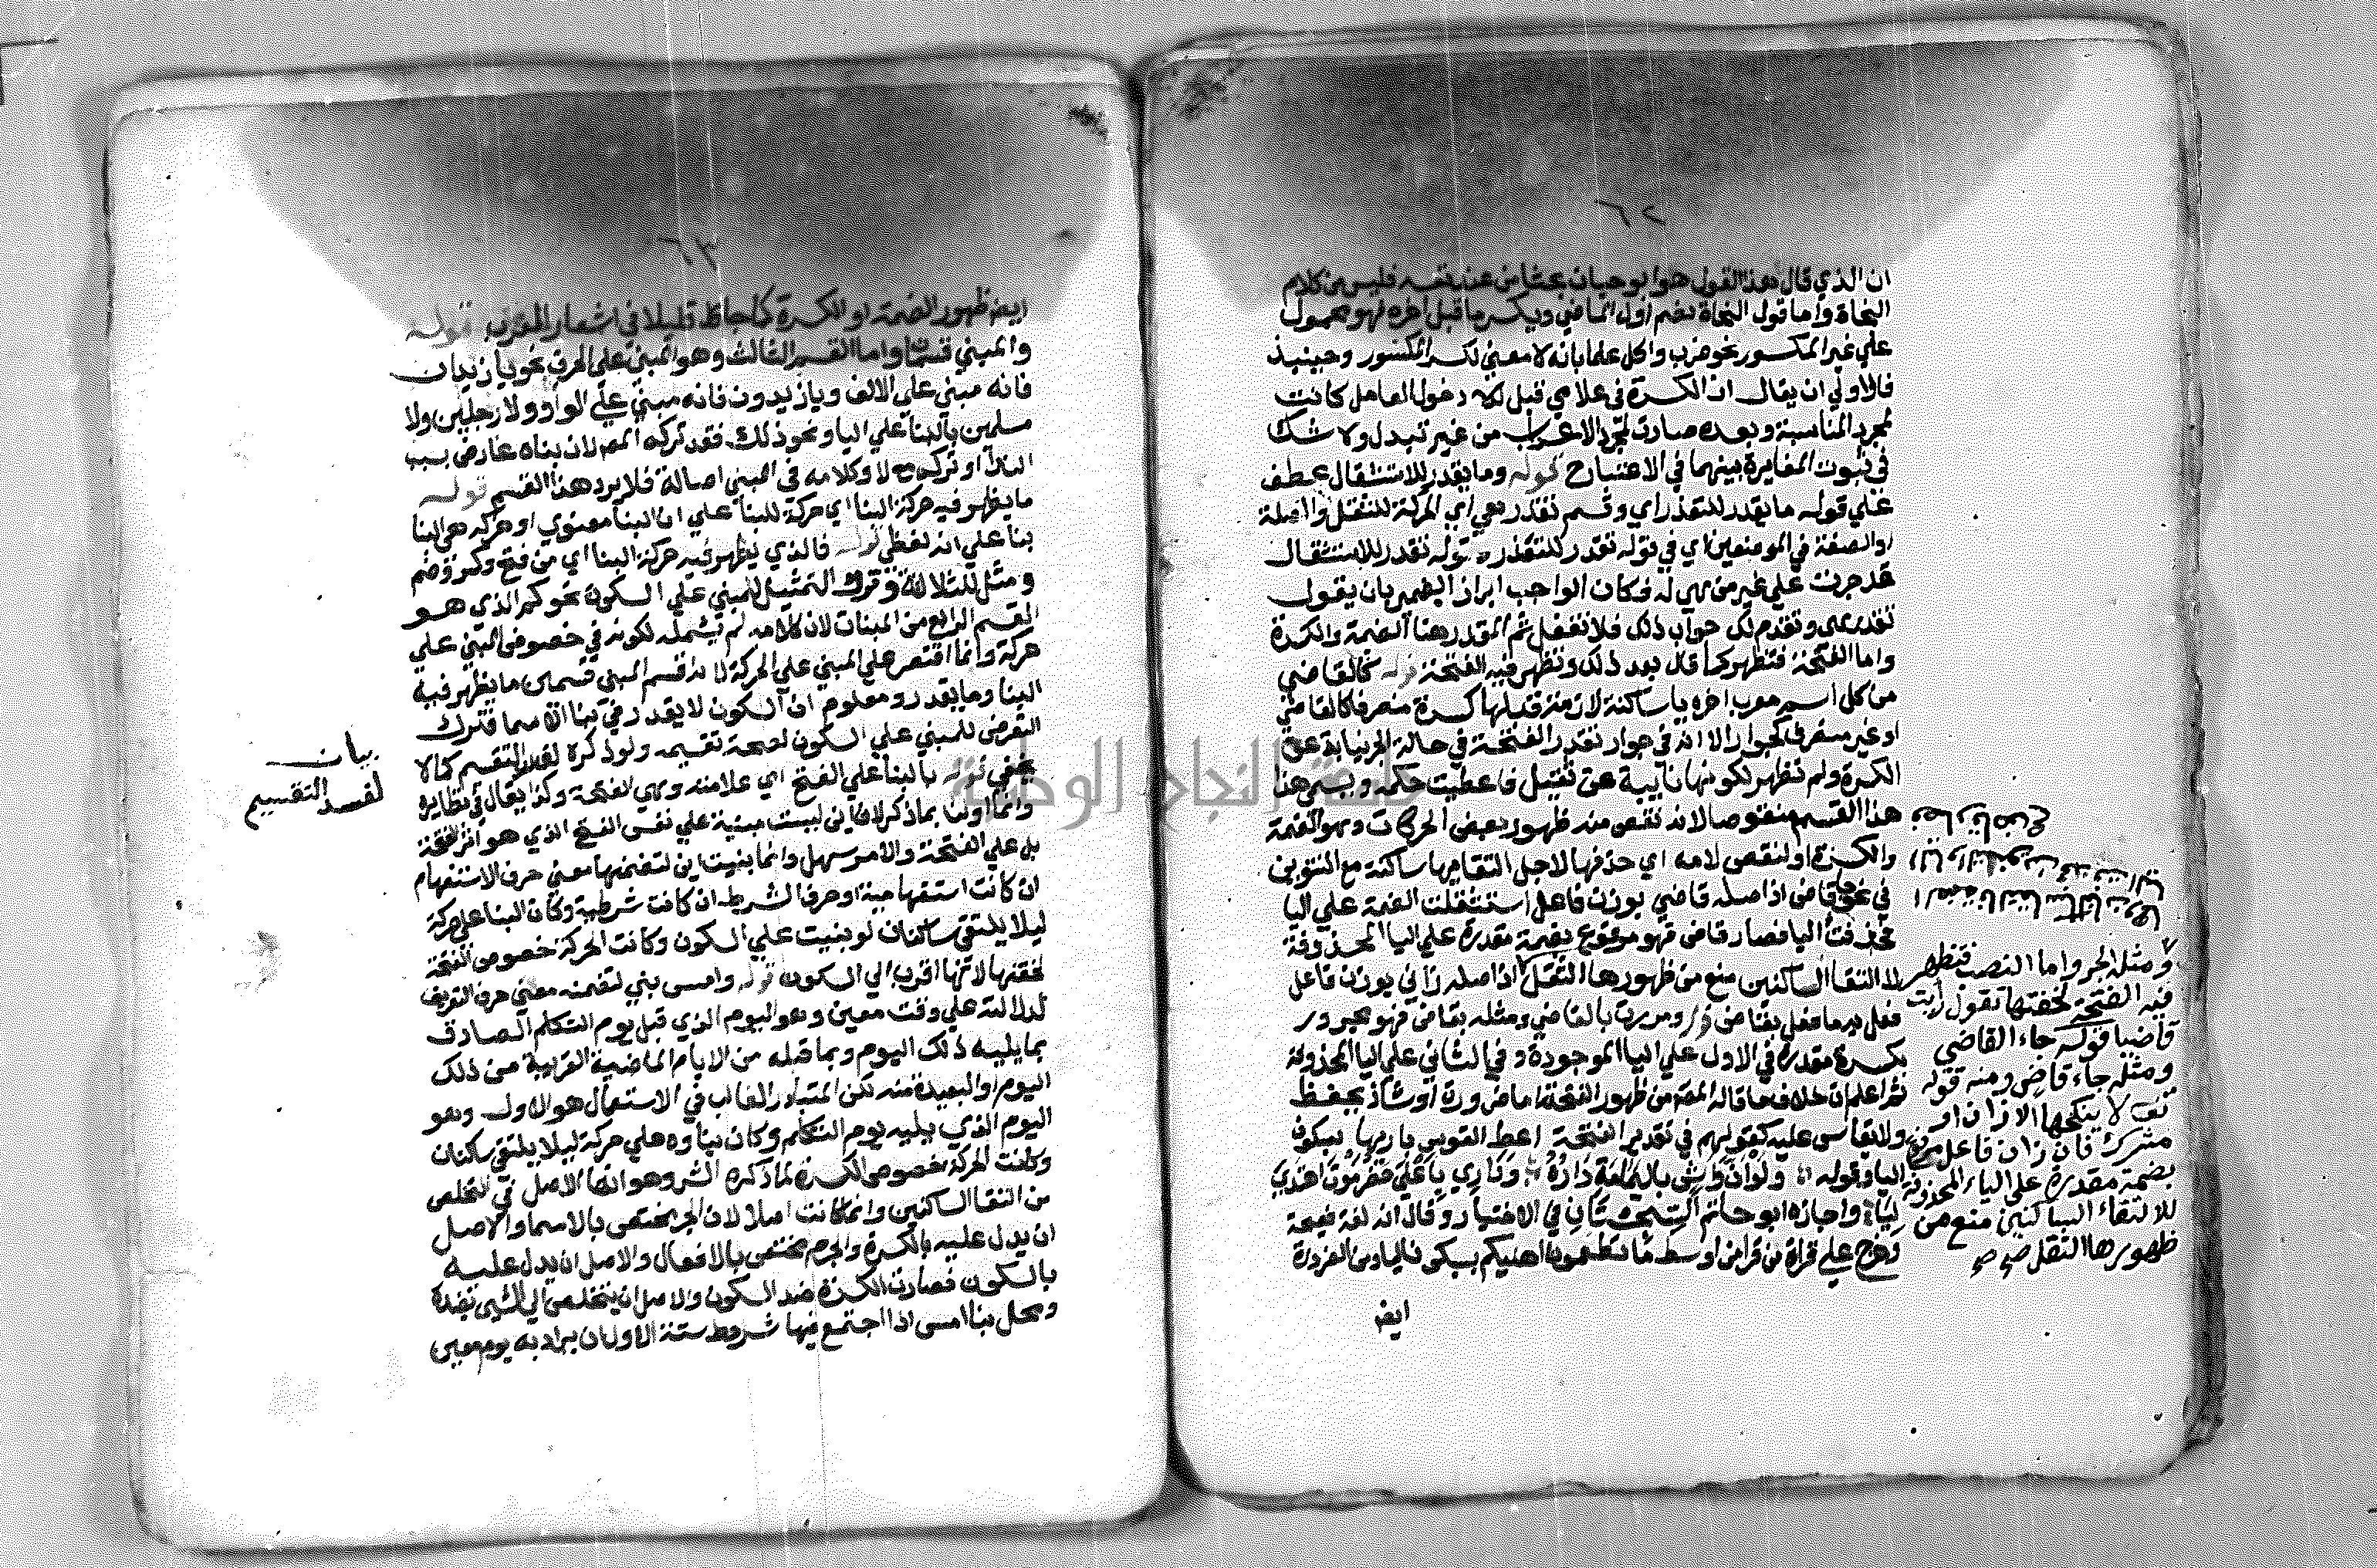 ٦٢
ان الذي قال هذا القول هو ابو حيان بحثا من عند نفسه فليس من كلام
النحاة واما قول النحاة يضم اول الماضي ويكسر ما قبل اخره فهو محمول
علي غير المكسور نحو ضرب واكل علما بانه لا معني لكسر المكسور وحينيذ
فالاولي ان يقال ان الكسرة في غلامي قبل دخول العامل كانت
لمجرد المناسبة وبعده صارت لمجرد الاعراب من غير تبدل ولا شك
في ثبوت المغايرة بينهما في الاعتبار قوله وما يقدر للاستثقال عطف
علي قوله ما يقدر للتعذر اي وقسم تقدر هي اي الحركة للثقل والصلة
او الصفة في الموضعين اي في قوله تقدر للتعذر وقوله تقدر للاستثقال
قد جرت علي غير من هي له فكان الواجب ابراز الضمير بان يقول
تقدر هي وتقدم لك جواب ذلك فلا تغفل ثم المقدر هنا الضمة والكسرة
واما الفتحة فتظهر كما قال بعد ذلك وتظهر فيه الفتحة قوله كالقاضي
من كل اسم معرب اخره يا ساكنة لازمة قبلها كسرة منصرفا كالقاضي
او غير منصرف كجوار الا انه في جوار تقدر الفتحة في حالة الجر نيابة عن
الكسرة ولم تظهر لكونها نايبة عن ثقيل فاعطيت حكمه ويسمي هنا
هذا القسم منقوصا لانه نقص منه ظهور بعض الحركات وهو الضمة
والكسرة او لنقص لامه اي حذفها لاجل التقايها ساكنة مع التنوين
في نحو قاض اذ اصله قاضي بوزن فاعل استثقلت الضمة علي اليا
فحذفت اليا فصار قاض فهو مرفوع بضمة مقدرة علي اليا المحذوفة
لالتقا الساكنين منع من ظهورها الثقل اذ اصله زاني بوزن فاعل
ففعل به ما فعل بقاض قوله ومررت بالقاضي ومثله بقاض فهو مجرور
بكسرة مقدرة في الاول علي اليا الموجودة وفي الثاني علي اليا المحذوفة
ثم اعلم ان خلاف ما قاله المص من ظهور الفتحة اما ضرورة او شاذ يحفظ
ولا يقاس عليه كقولهم في تقدير الفتحة اعط القوس باريها بسكون
اليا وقوله ولو ان واش باليمامة داره وداري باعلي حضرموت اهتدي
ليا واجازه ابو حاتم السجستاني في الاختيار وقال انه لغة فصيحة
وخرج علي قراة من قرا من اوسط ما تطعمون اهليكم بسكون اليا
ايض
ومثله الجر واما النصب فتظهر
فيه الفتحة لخفتها تقول رايت
قاضيا قوله جاء القاضي
ومثله جاء قاض ومنه قوله
تعـ لا ينكحها الا زان او
مشرك فان زان فاعل مرفوع
بضمة مقدرة علي الياء المحذوفة
للالتقاء الساكنين منع من
ظهورها الثقل صح صح
٦٣
ايض ظهور الضمة او الكسرة كما جا قليلا في اشعار العرب قوله
والمبني قسمان واما القسم الثالث وهو المبني علي الحرف نحو يا زيدان
فانه مبني علي الالف ويا زيدون فانه مبني علي الواو ولا رجلين ولا
مسلمين بالبنا علي اليا ونحو ذلك فقد تركه المص لان بناه عارض بسبب
الندا او تركبه مع لا وكلامه في المبني اصالة فلا يرد هذا القسم قوله
ما يظهر فيه حركة البنا اي حركة للبنا علي ان البنا معنوي او حركة هي البنا
بنا علي انه لفظي قوله فالذي يظهر فيه حركة البنا اي من فتح وكسر وضم
ومثل للثلاثة وترك التمثيل للمبني علي السكون نحو كم الذي هو
القسم الرابع من المبنات لان كلامه لم يشمله لكونه في خصوص المبني علي
حركة وانما اقتصر علي المبني علي الحركة لانه قسم المبني قسمين ما يظهر فيه
البنا وما يقدر ومعلوم ان السكون لا يقدر في بنا الاسما فترك
التعرض للمبني علي السكون لصحة تقسيمه ولو ذكره لفسد التقسيم كما لا
يخفي قوله بالبنا علي الفتح اي علامته وهي الفتحة وكذا يقال في نظايره
وانما اولنا بما ذكر لان اين ليست مبنية علي نفس الفتح الذي هو اثر الفتحة
بل علي الفتحة والامر سهل وانما بنيت اين لتضمنها معني حرف الاستفهام
ان كانت استفهامية او حرف الشرط ان كانت شرطية وكان البنا علي حركة
ليلا يلتقي ساكنان لو بنيت علي السكون وكانت الحركة خصوص الفتحة
لخفتها لانها اقرب الي السكون قوله وامس بني لتضمنه معني حرف التعريف
لدلالته علي وقت معين وهو اليوم الذي قبل يوم التكلم الصادق
بما يليه ذلك اليوم وبما قبله من الايام الماضية القريبة من ذلك
اليوم او البعيدة منه لكن المتبادر الغالب في الاستعمال هو الاول وهو
اليوم الذي يليه يوم التكلم وكان بناوه علي حركة ليلا يلتقي ساكنان
وكانت الحركة خصوص الكسرة لما ذكره الش وهو انها الاصل في التخلص
من التقا الساكنين وانما كانت اصلا لان الجر مختص بالاسما والاصل
ان يدل عليه بالكسرة والجزم مختص بالافعال والاصل ان يدل عليه
بالسكون فصارت الكسرة ضد السكون والاصل ان يتخلص الي الشي بضده
ومحل بنا امس اذا اجتمع فيها شروط ستة الاول ان يراد به يوم معين
بيان
لفسد التقسيم